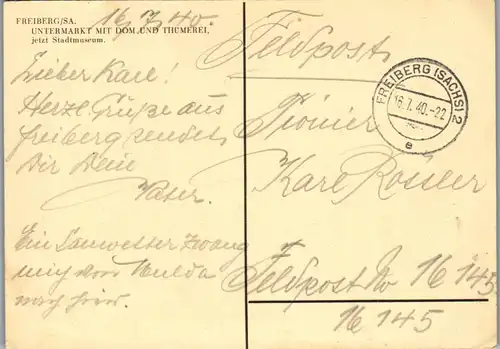 FREIBERG/SA.
UNTERMARKT MIT DOM UND THÜMEREI,
jetzt Stadtmuseum.
16/7/40.
Lieber Karl!
Herzl. Grüße aus
Freiberg sendet
Dir Dein
Vater.
Ein Sauwetter zwang
mich von Mulda
nach hier.
Feldpost
FREIBERG (SACHS) 2
16.7.40.-22
e
Pionier
Karl Rössler
Feldpost No 16 145
16 145